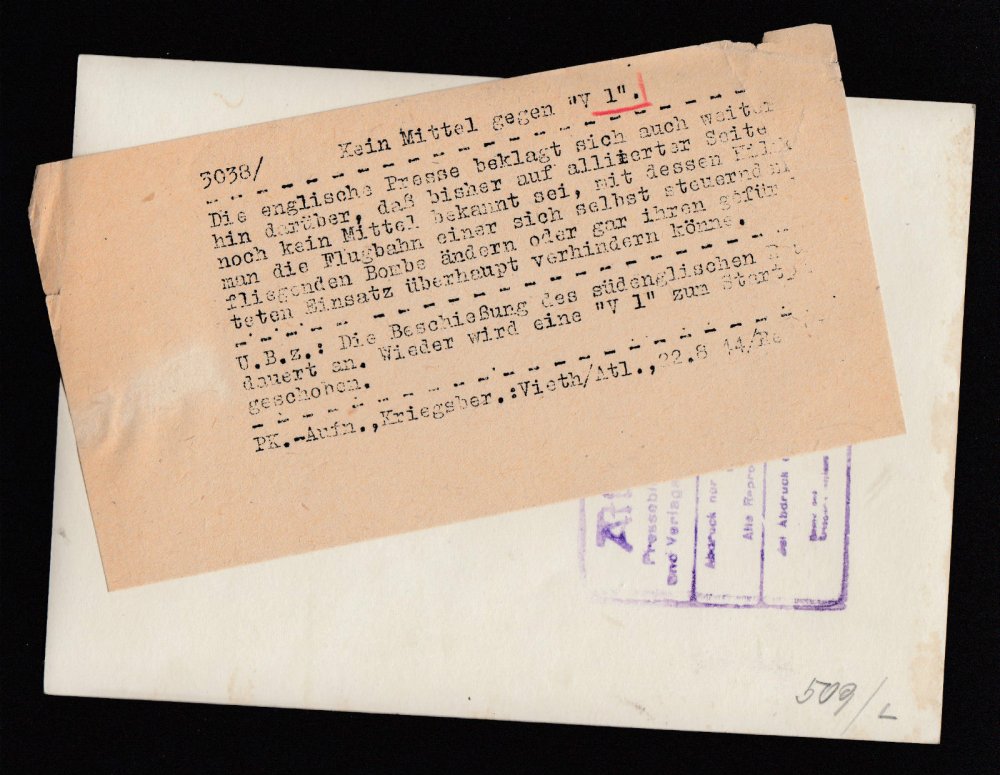 Kein Mittel gegen "V 1".
3038/
Die englische Presse beklagt sich auch weiter
hin darüber, daß bisher auf alliierter Seite
noch kein Mittel bekannt sei, mit dessen Hilfe
man die Flugbahn einer sich selbst steuernden
fliegenden Bombe ändern oder gar ihren gefür
teten Einsatz überhaupt verhindern könne.
U.B.z.: Die Beschießung des südenglischen
dauert an. Wieder wird eine "V 1" zum Startpl
geschoben.
PK.-Aufn.,Kriegsber.:Vieth/Atl.,22.8 44/Re
Atl
Pressebi
und Verlags
Abdruck nur
Alle Repro
Bei Abdruck
509/L